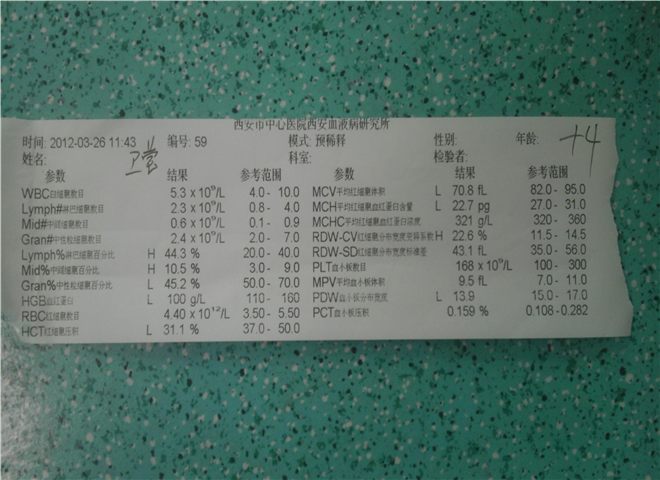 西安市中心医院西安血液病研究所
时间: 2012-03-26 11:43 编号: 59 模式: 预稀释 性别: 年龄: +4
姓名: 卫莹 科室: 检验者:
参数 结果 参考范围 参数 结果 参考范围
WBC白细胞数目 5.3 x 10⁹/L 4.0 - 10.0 MCV平均红细胞体积 L 70.8 fL 82.0 - 95.0
Lymph#淋巴细胞数目 2.3 x 10⁹/L 0.8 - 4.0 MCH平均红细胞血红蛋白含量 L 22.7 pg 27.0 - 31.0
Mid#中间细胞数目 0.6 x 10⁹/L 0.1 - 0.9 MCHC平均红细胞血红蛋白浓度 321 g/L 320 - 360
Gran#中性粒细胞数目 2.4 x 10⁹/L 2.0 - 7.0 RDW-CV红细胞分布宽度变异系数 H 22.6 % 11.5 - 14.5
Lymph%淋巴细胞百分比 H 44.3 % 20.0 - 40.0 RDW-SD红细胞分布宽度标准差 43.1 fL 35.0 - 56.0
Mid%中间细胞百分比 H 10.5 % 3.0 - 9.0 PLT血小板数目 168 x 10⁹/L 100 - 300
Gran%中性粒细胞百分比 L 45.2 % 50.0 - 70.0 MPV平均血小板体积 9.5 fL 7.0 - 11.0
HGB血红蛋白 L 100 g/L 110 - 160 PDW血小板分布宽度 L 13.9 15.0 - 17.0
RBC红细胞数目 4.40 x 10¹²/L 3.50 - 5.50 PCT血小板压积 0.159 % 0.108 - 0.282
HCT红细胞压积 L 31.1 % 37.0 - 50.0